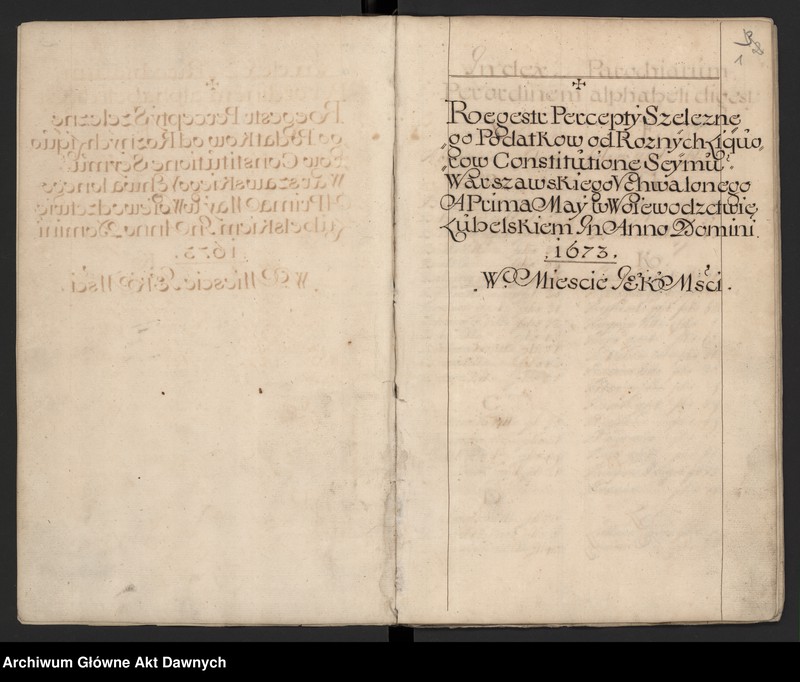 1
+
Regestr Percepty Szelezne
go Podatkow od Roznych Liquo
row Constitutione Seymu
Warszawskiego Vchwalonego
A Prima May w Woiewodztwie
Lubelskiem In Anno Domini
.1673.
. W Miescie JEKo Msci .
Archiwum Główne Akt Dawnych